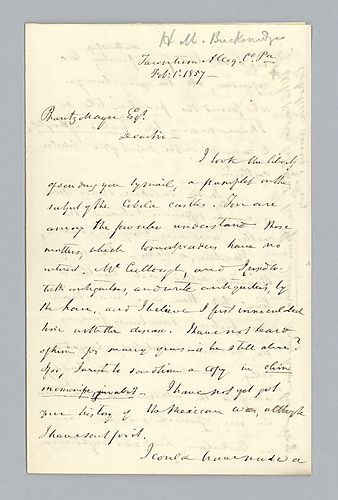 H. M. Brackenridge
Tarentum Alleg. Co. Pa
Feb. 1st 1857 -
Brantz Mayer Esqr.
Dear Sir -
I took the liberty
of sending you by mail, a pamphlet on the
subject of the Cibola castles. You are
among the few who understand these
matters, which have no
interest. McCullough, and I used to
talk antiquities, and write antiquities, by
the hour, and I believe I first innoculated
him with the disease. I have not heard
of him for many years - is he still alive?
If so, I wish to send him a copy in
I have not yet got
your history of the Mexican war, although
I have sent for it.
I could have made a